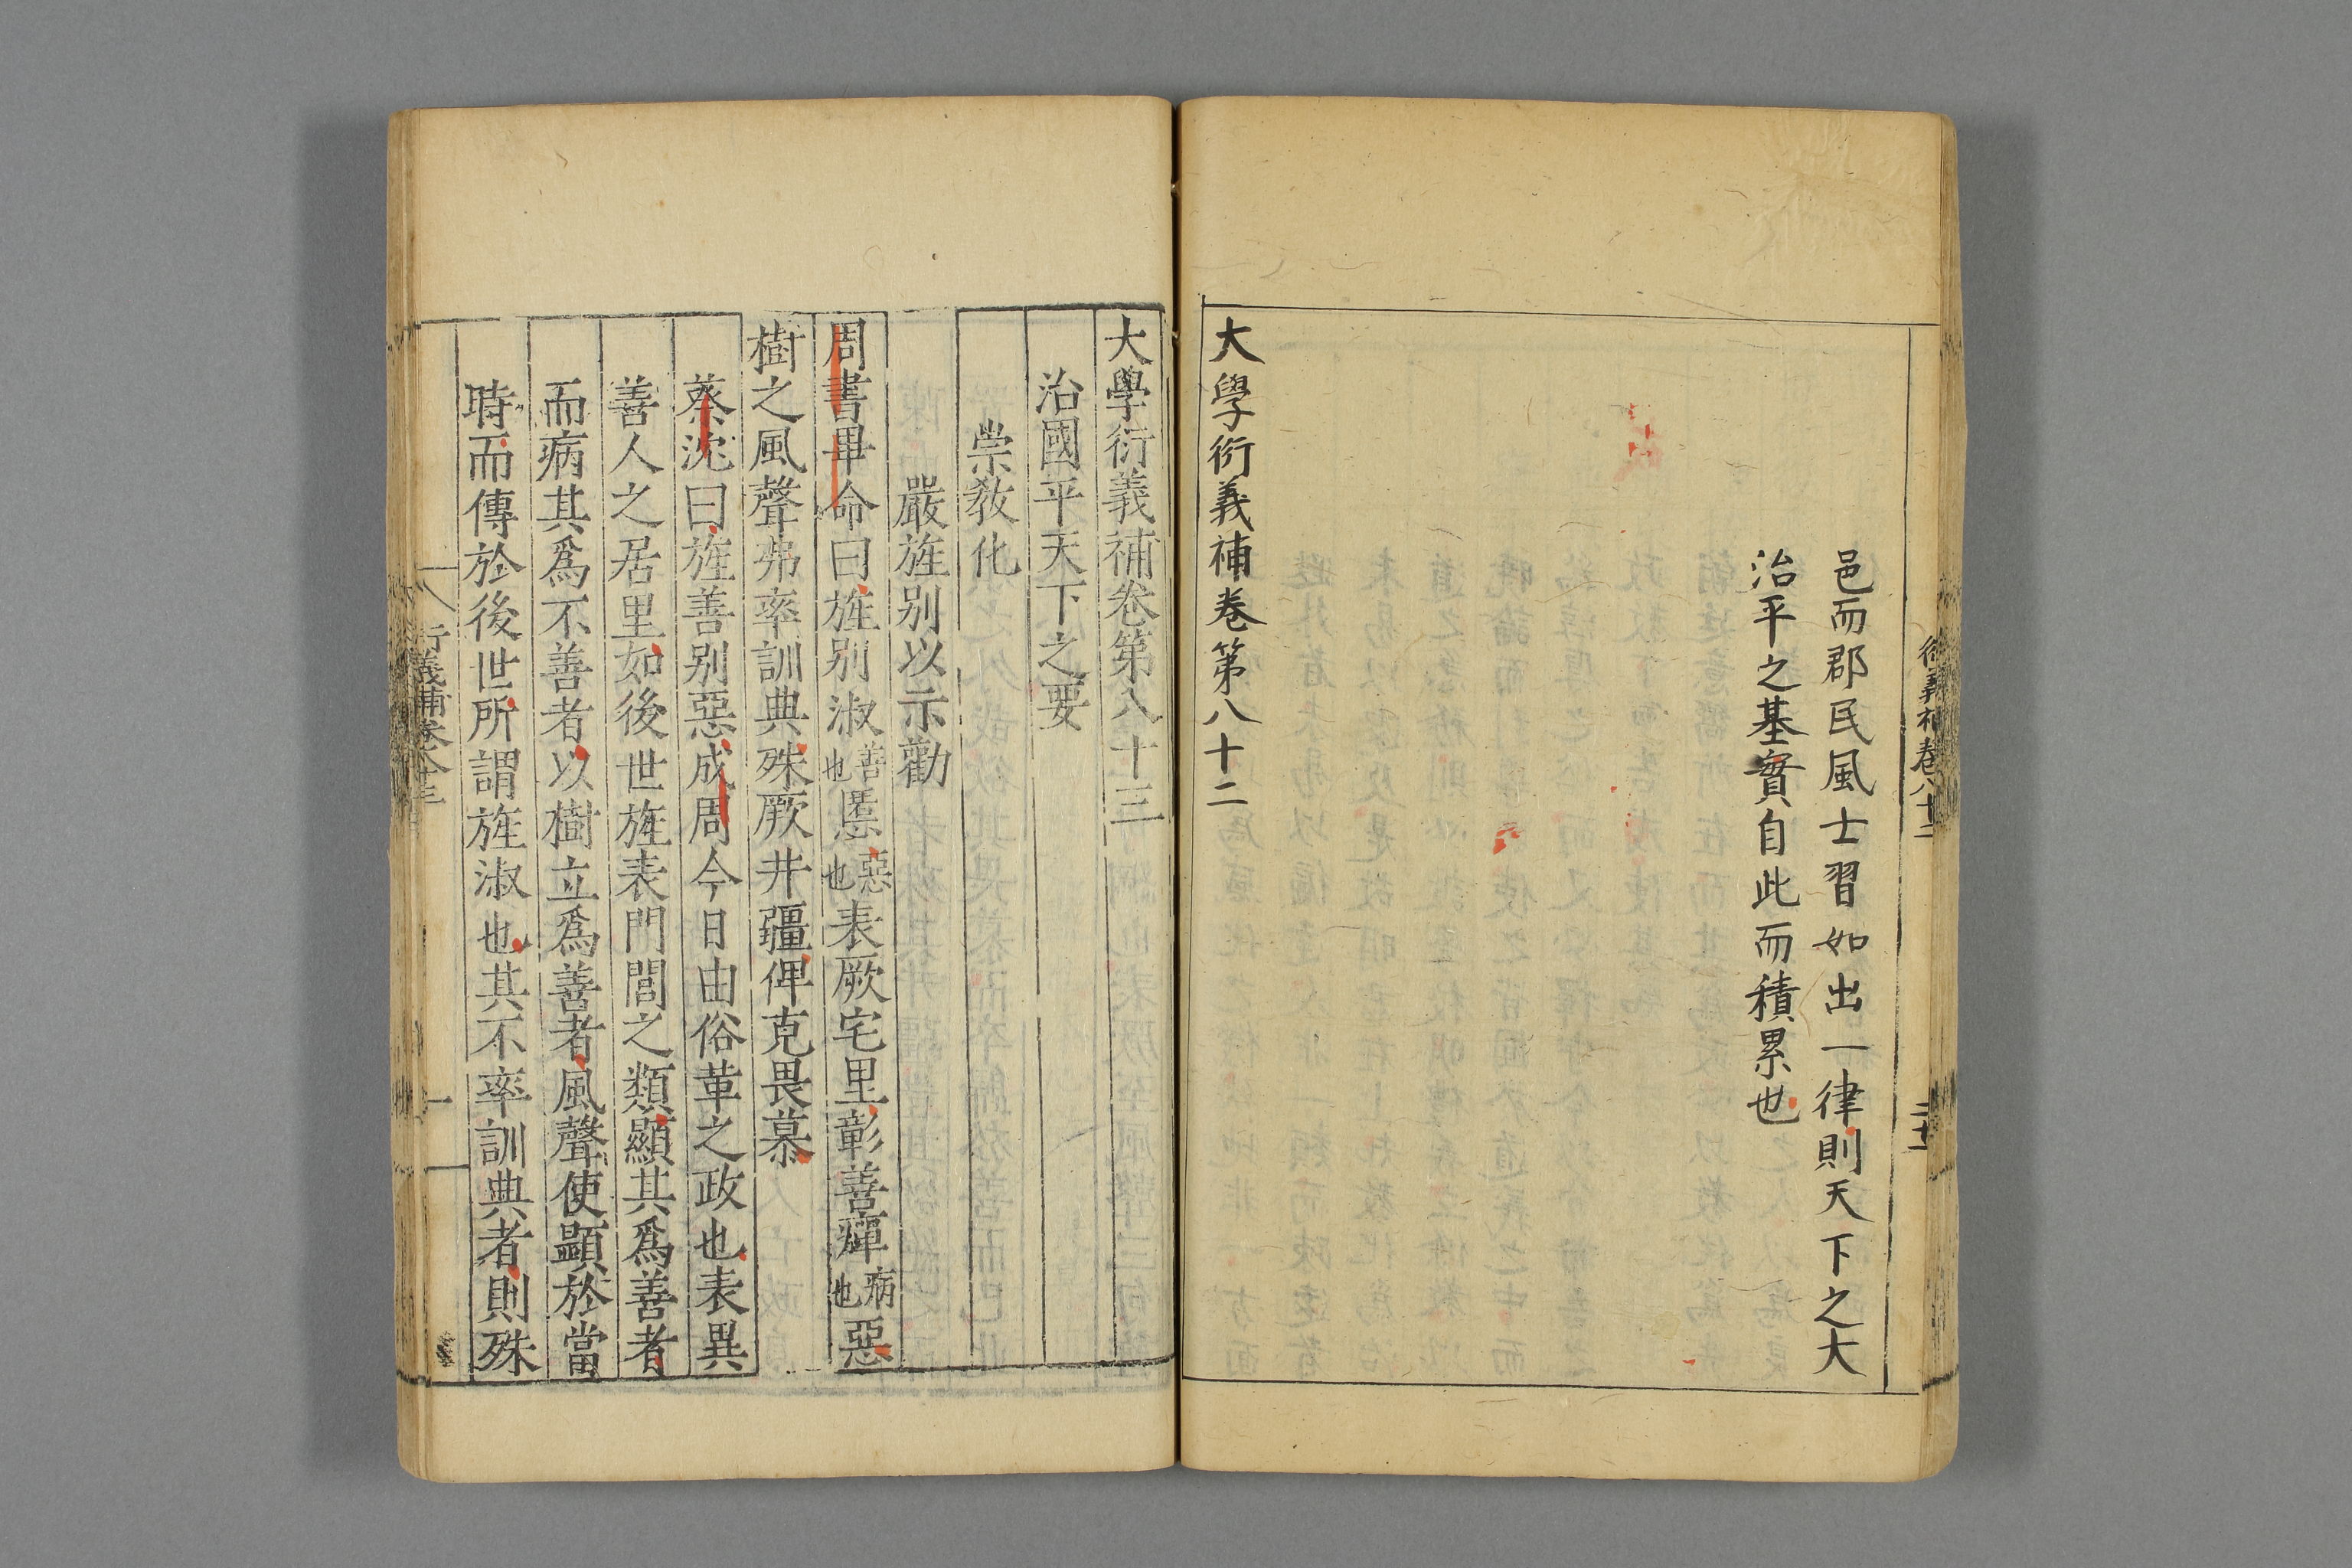 衍義補卷八十二
二十一
邑而郡民風士習如出一律則天下之大
治平之基實自此而積累也
大學衍義補卷第八十二
大學衍義補卷第八十三
治國平天下之要
崇敎化
嚴旌别以示勸
周書畢命曰旌别淑善也慝惡也表厥宅里彰善癉病也惡
樹之風聲弗率訓典殊厥井疆俾克畏慕
蔡沈曰旌善别惡成周今日由俗革之政也表異
善人之居里如後世旌表門閭之類顯其爲善者
而病其爲不善者以樹立爲善者風聲使顯於當
時而傳於後世所謂旌淑也其不率訓典者則殊
衍義補卷八十三
一